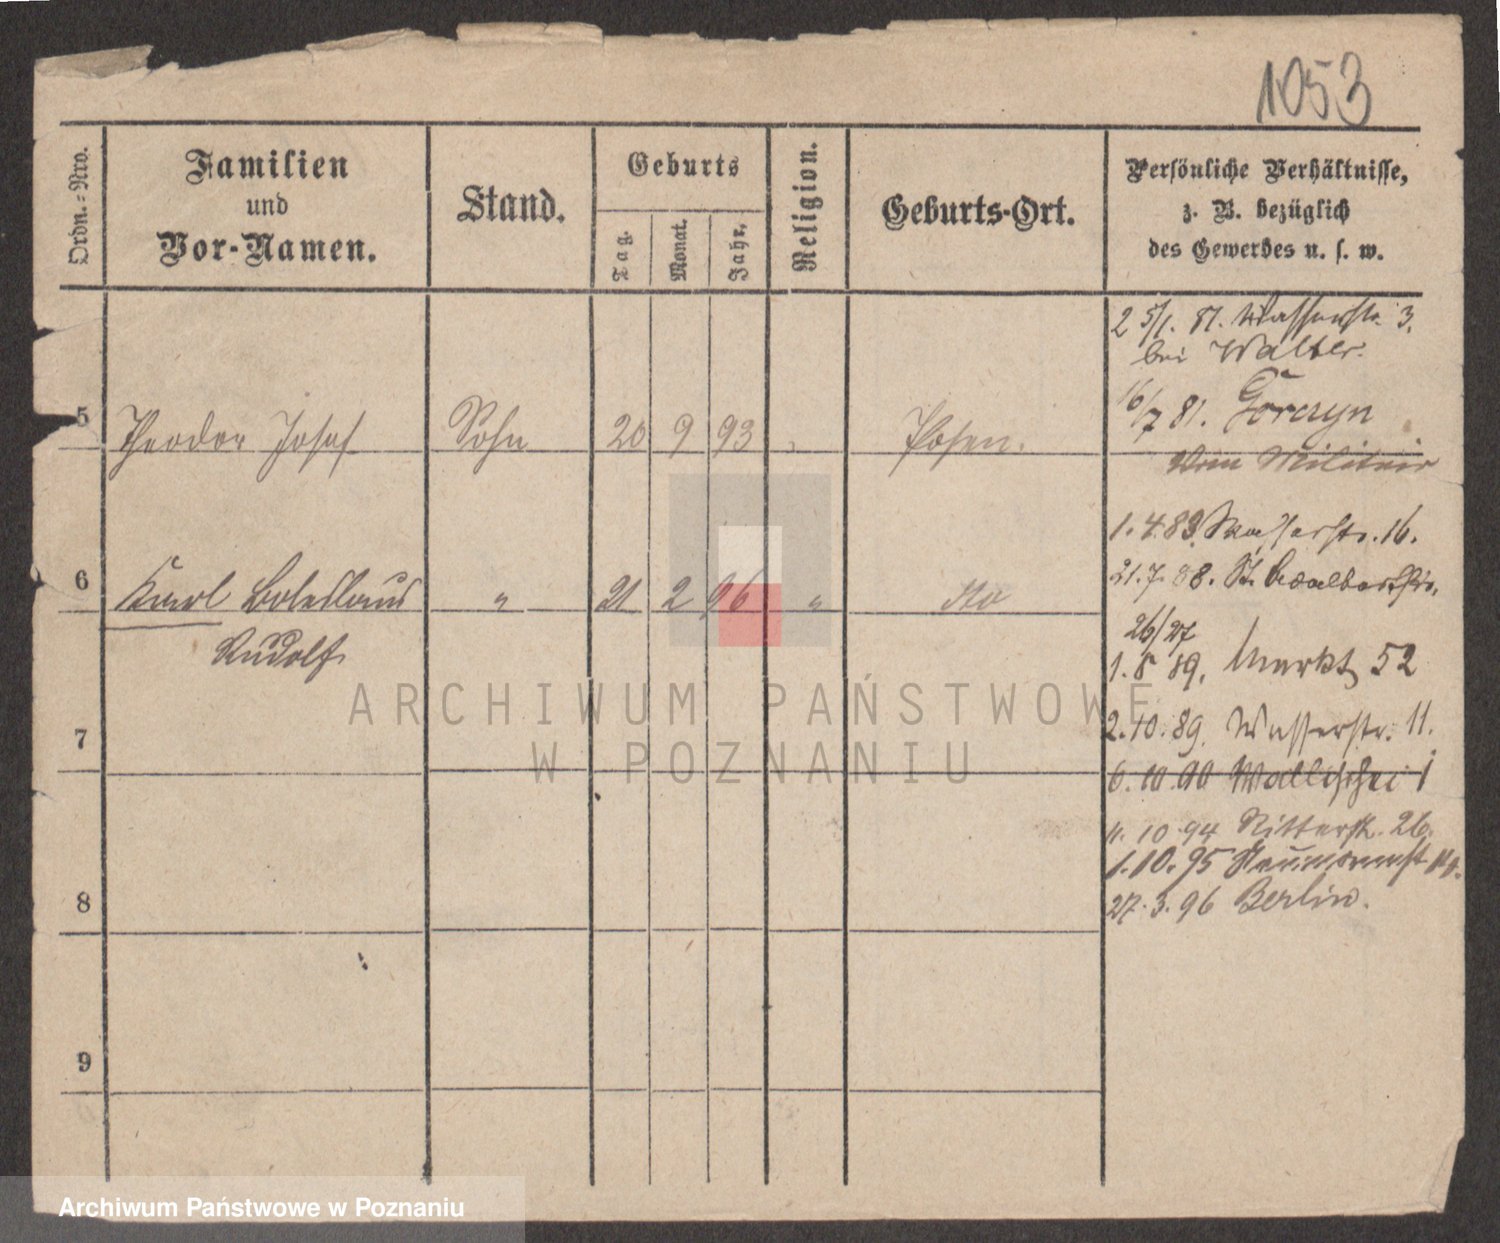 1053
Ordn.-Nro.
Familien
und
Vor-Namen.
Stand.
Geburts
Tag.
Monat.
Jahr.
Religion.
Geburts-Ort.
Persönliche Verhältnisse,
z. B. bezüglich
des Gewerbes u. s. w.
2 5/1. 81. Wasserstr. 3.
bei Walter.
16/7 81. Gorczyn
Vom Militair
5 Theodor Josef Sohn 20 9 93 Posen.
1.4.83. Wasserstr. 16.
21.7.88. St. Adalbertstr.
26/27
6 Karl Boleslaus " 21 2 96 " dto
Rudolf
1.8 89. Markt 52
2.10.89. Wasserstr. 11.
7
6.10.90 Wallischei 1
4.10.94 Ritterstr. 26.
1.10.95
27.3.96 Berlin.
8
9
ARCHIWUM PAŃSTWOWE
W POZNANIU
Archiwum Państwowe w Poznaniu